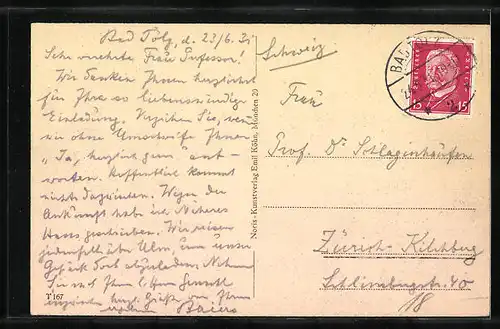 Bad Tölz, d. 23/6. 31
Sehr verehrte Frau Professor!
Wir danken Ihnen herzlichst
für Ihre so liebenswürdige
Einladung. Verzeihen Sie, wenn
wir ohne Umschweife Ihnen
"Ja, herzlich gern" ant-
worten. Hoffentlich kommt
nichts dazwischen. Wegen der
Ankunft habe ich Näheres
geschrieben. Wir reisen
jedenfalls über Ulm, um unser
Gepäck dort abzuladen. Nehmen
Sie mit Ihrem
herzl. Grüße von Ihrem
Baiers
T 167
Noris-Kunstverlag Emil Köhn, München 20
Schweiz
Frau
Prof. Dr. Schlaginhaufen
Zürich-Kilchberg
40
BAD TÖLZ
15 15